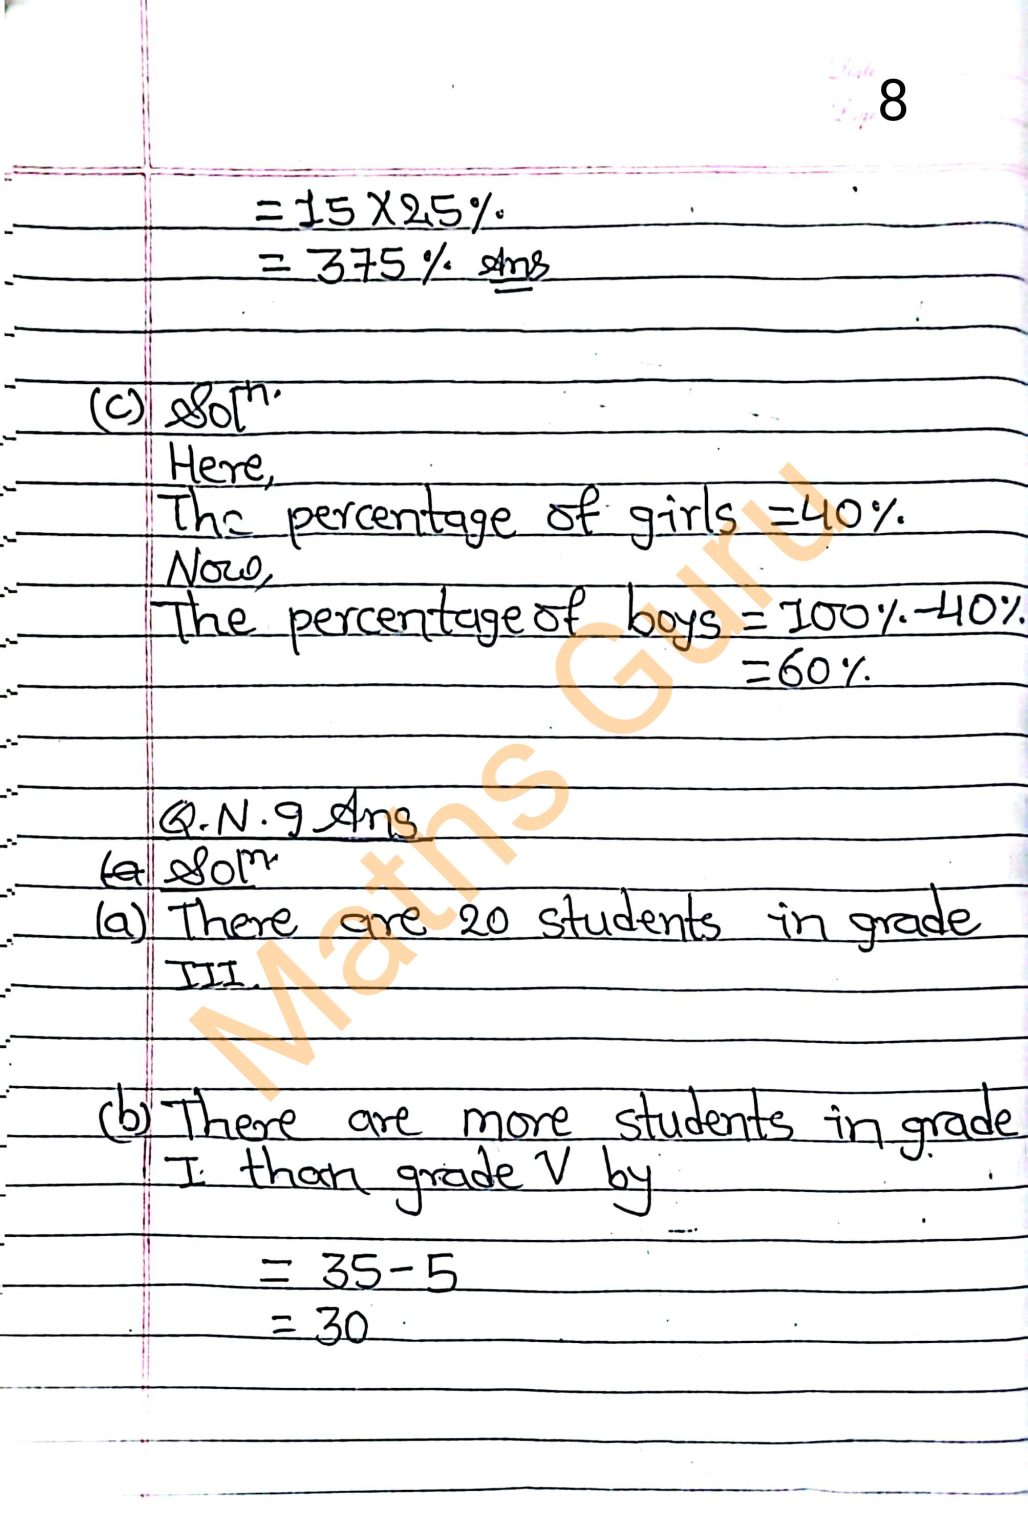 8
= 15 X 25%
= 375% Ans
(c) Solⁿ.
Here,
The percentage of girls = 40%.
Now,
The percentage of boys = 100% - 40%.
= 60%.
Maths Guru
Q.N.9 Ans
(a Solⁿ
(a) There are 20 students in grade
III.
(b) There are more students in grade
I than grade V by
= 35-5
= 30